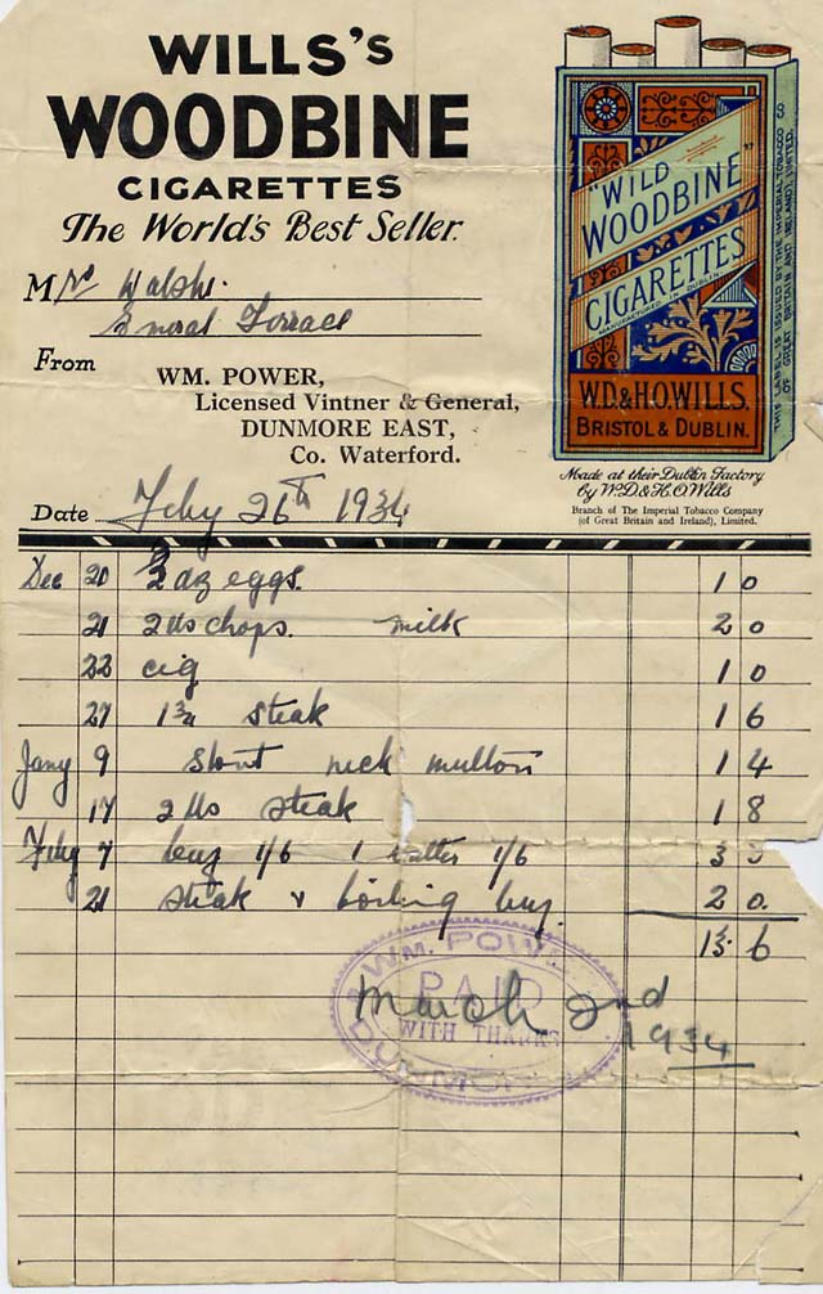 WILLS's
WOODBINE
CIGARETTES
The World's Best Seller.
"WILD
WOODBINE"
CIGARETTES
MANUFACTURED IN DUBLIN
W.D.&H.O.WILLS.
BRISTOL & DUBLIN.
THIS LABEL IS ISSUED BY THE IMPERIAL TOBACCO CO
OF GREAT BRITAIN AND IRELAND, LIMITED.
Made at their Dublin Factory
by W.D.& H.O.Wills
Branch of The Imperial Tobacco Company
(of Great Britain and Ireland), Limited.
Mrs Walsh.
Terrace
From
WM. POWER,
Licensed Vintner & General,
DUNMORE EAST,
Co. Waterford.
Date Feby 26th 1934
Dec 20 2 dz eggs. 1 0
21 2 lbs chops. milk 2 0
22 cig 1 0
27 1¾ steak 1 6
Jany 9 neck mutton 1 4
17 2 lbs steak 1 8
Feby 7 1/6 1 1/6 3
21 steak & boiling 2 0.
13 6
WM. POWE
PAID
WITH THANKS
DUNMORE
March 2nd
1934